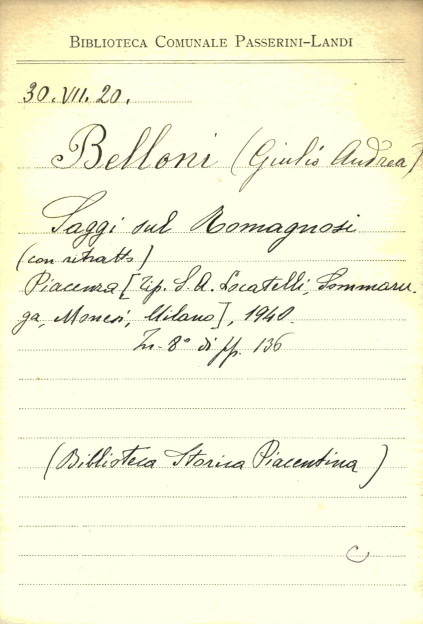 BIBLIOTECA COMUNALE PASSERINI-LANDI
30.VII.20.
Belloni (Giulio Andrea)
Saggi sul Romagnosi
(con ritratto)
Piacenza [Tip. S. A. Locatelli, Sommaru-
ga, Monesi, Milano], 1940.
In-8° di pp. 136
(Biblioteca Storica Piacentina)
C